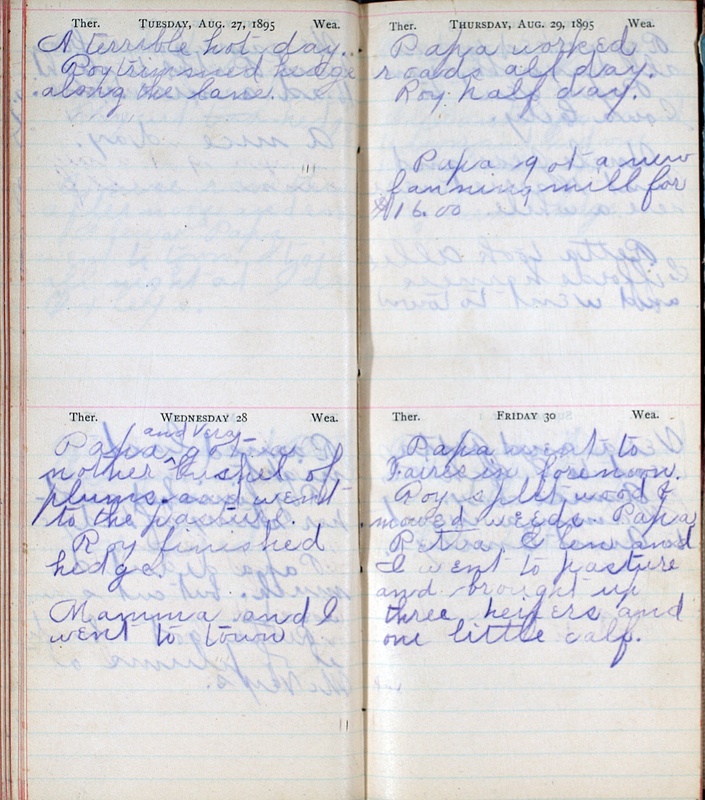 Ther. Tuesday, Aug. 27, 1895 Wea.
A terrible hot day.
Roy trimmed hedge
along the lane.
Ther. Wednesday 28 Wea.
and Very
Papa got a
nother bushel of
plums and went
to the pasture.
Roy finished
hedge.
Mamma and I
went to town
Ther. Thursday, Aug. 29, 1895 Wea.
Papa worked
roads all day.
Roy half day.
Papa got a new
fanning mill for
$16.00
Ther. Friday 30 Wea.
Papa went to
Faires in forenoon.
Roy split wood &
mowed weeds. Papa
Retta and
I went to pasture
and brought up
three heifers and
one little calf.